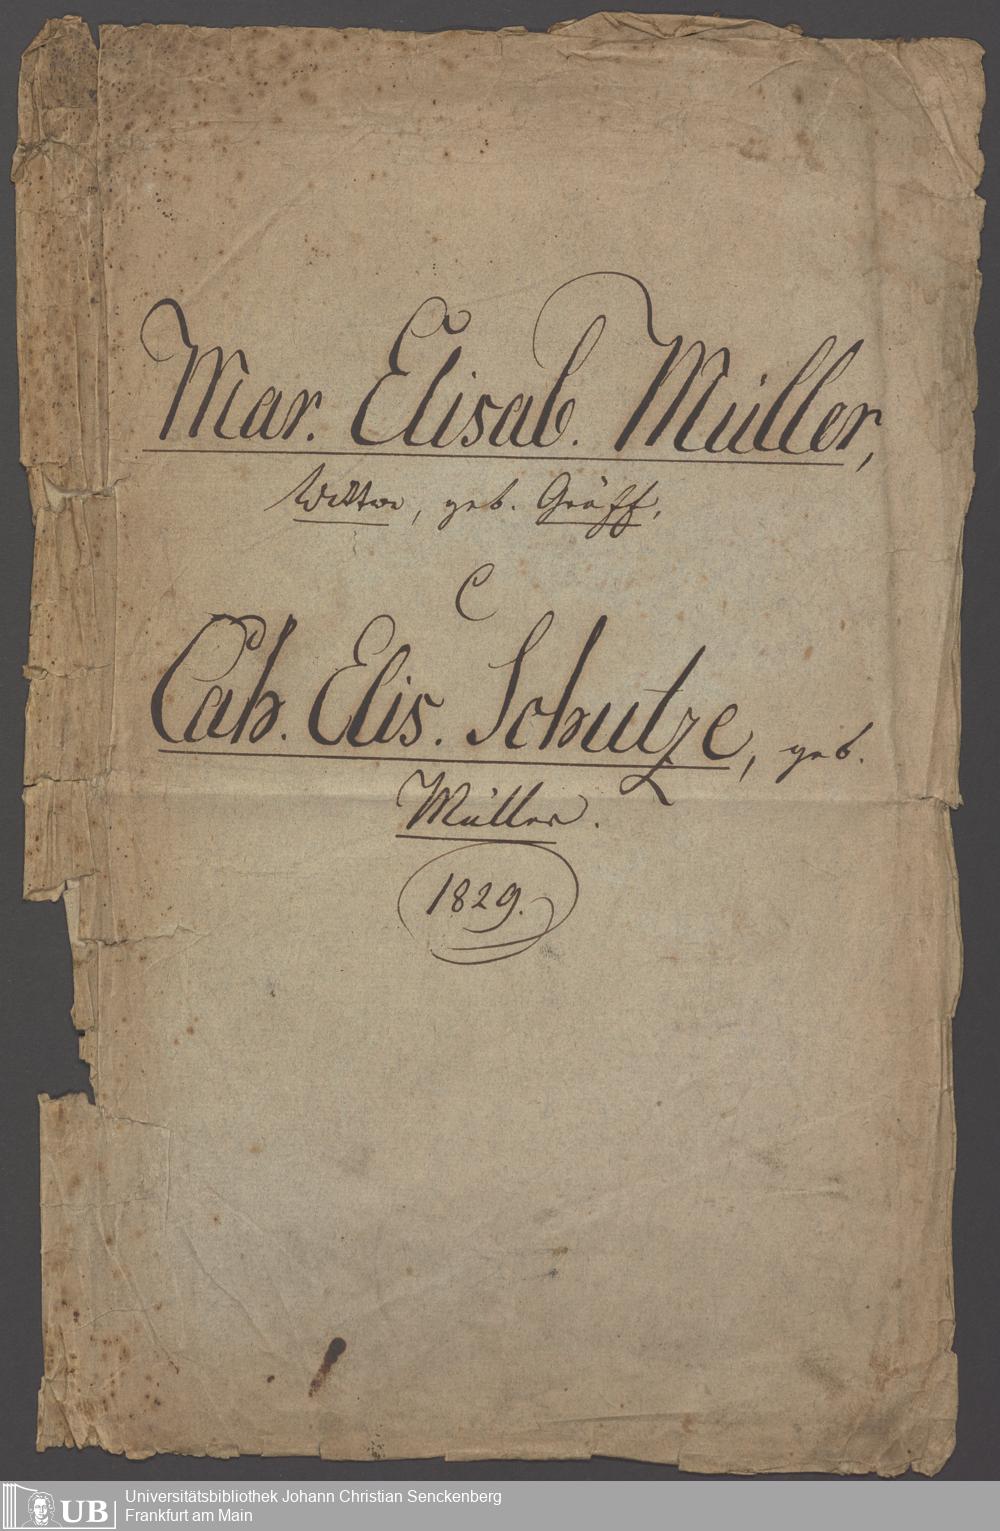 Mar. Elisab. Müller,
Wittwe, geb. Gräff,
C
Cath. Elis. Schutze, geb.
Müller.
1829.
UB
Universitätsbibliothek Johann Christian Senckenberg
Frankfurt am Main